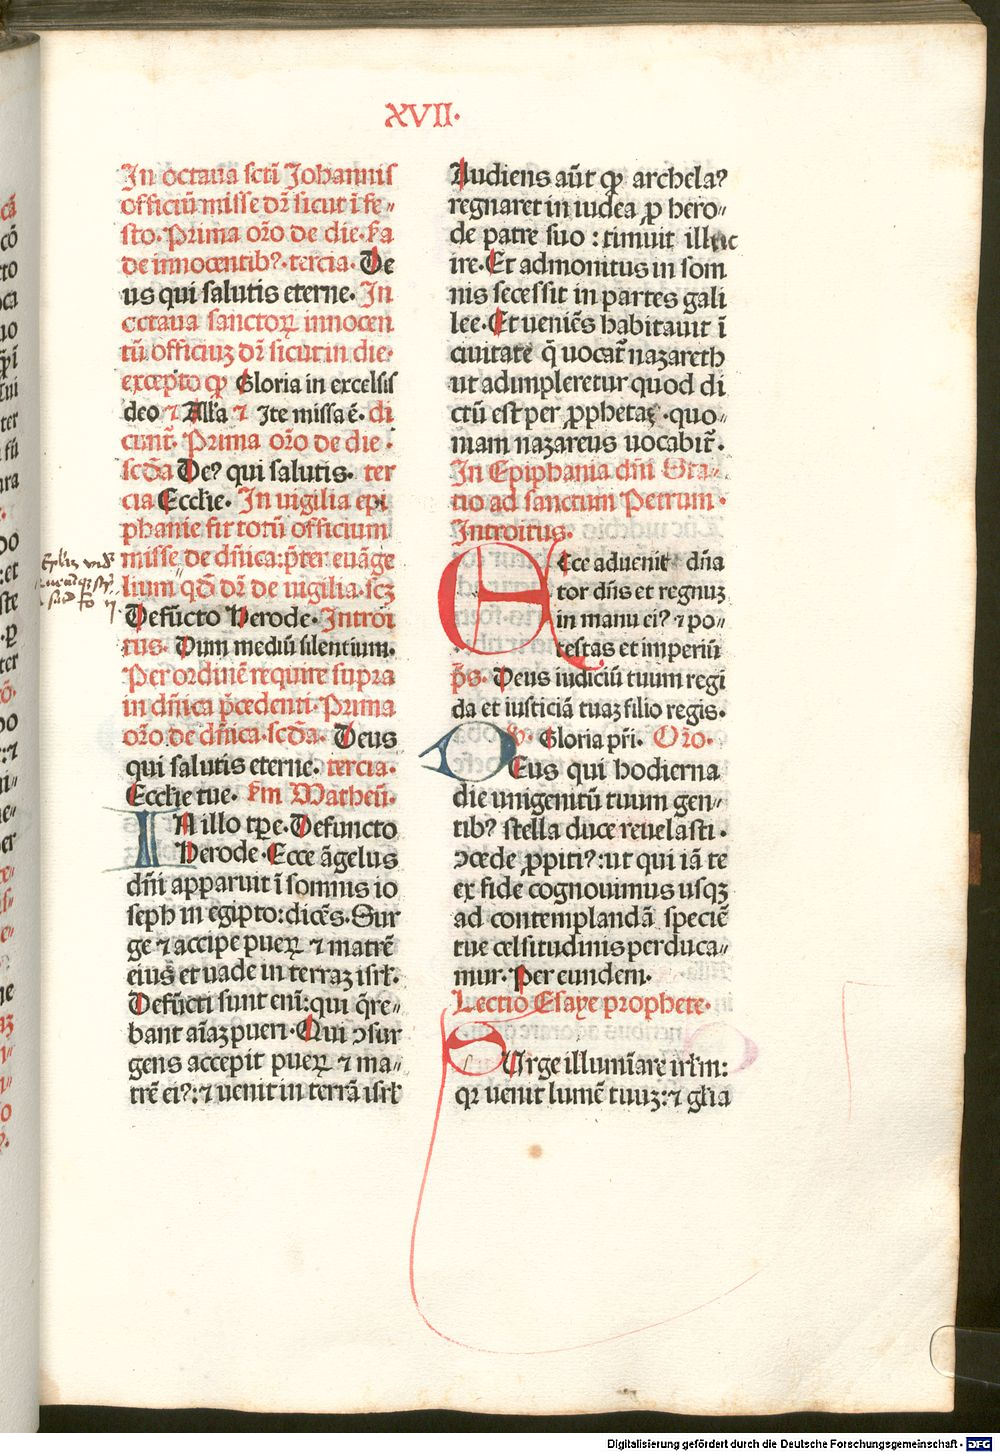 XVII.
In octaua scti Johannis
officiū misse dr̄ sicut ī fe⸗
sto. Prima or̄o de die. scd̄a
de innocentibꝰ. tercia. De
us qui salutis eterne. In
octaua sanctoꝝ innocen
tū officiuꝫ dr̄ sicut in die.
excepto ꝙ Gloria in excelsis
deo ⁊ Alla ⁊ Ite missa ē. di
cunt̄. Prima or̄o de die.
scd̄a Deꝰ qui salutis. ter
cia Eccl̄ie. In uigilia epi
phanie fit totū officium
misse de dn̄ica: p̄ter euāge
lium qd̄ dr̄ de uigilia. scꝫ
Defūcto Herode. Introi
tus. Dum mediū silentium.
Per ordinē require supra
in dn̄ica p̄cedenti. Prima
or̄o de dn̄ica. scd̄a. Deus
qui salutis eterne. tercia.
Eccl̄ie tue. Scd̄m Matheū.
IN illo tp̄e. Defuncto
Herode. Ecce āgelus
dn̄i apparuit ī somnis io
seph in egipto: dicēs. Sur
ge ⁊ accipe pueꝝ ⁊ matrē
eius et uade in terraꝫ isrl̄.
Defūcti sunt eni̅: qui q̄re⸗
bant ai̅aꝫ pueri. Qui ꝯsur
gens accepit pueꝝ ⁊ ma⸗
trē eiꝰ: ⁊ uenit in terrā isrl̄
Audiens aūt ꝙ archelaꝰ
regnaret in iudea ꝓ hero⸗
de patre suo: timuit illuc
ire. Et admonitus in som
nis secessit in partes gali
lee. Et ueniēs habitauit ī
ciuitate q̄ uocat̄ nazareth
ut adimpleretur quod di
ctū est per ꝓphetas. quo⸗
niam nazareus uocabit̄.
In Epiphania dn̄i Sta⸗
tio ad sanctum Petrum.
Introitus.
ECce aduenit dn̄a
tor dn̄s et regnuꝫ
in manu eiꝰ ⁊ po⸗
testas et imperiū
p̄s. Deus iudiciū tuum regi
da et iusticiā tuaꝫ filio regis.
℣. Gloria pr̄i. Or̄o.
DEus qui hodierna
die unigenitū tuum gen⸗
tibꝰ stella duce reuelasti.
ꝯcede ꝓpitiꝰ: ut qui iā te
ex fide cognouimus usqꝫ
ad contemplandā speciē
tue celsitudinis perduca⸗
mur. Per eundem.
Lectio Esaye prophete.
SUrge illumīare irl̄m:
qꝛ uenit lumē tuuꝫ: ⁊ gl̄ia
Digitalisierung gefördert durch die Deutsche Forschungsgemeinschaft - DFG